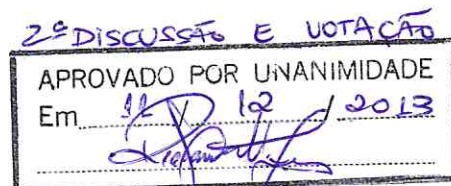 2ª DISCUSSÃO E VOTAÇÃO
APROVADO POR UNANIMIDADE
Em 11 / 12 / 2013